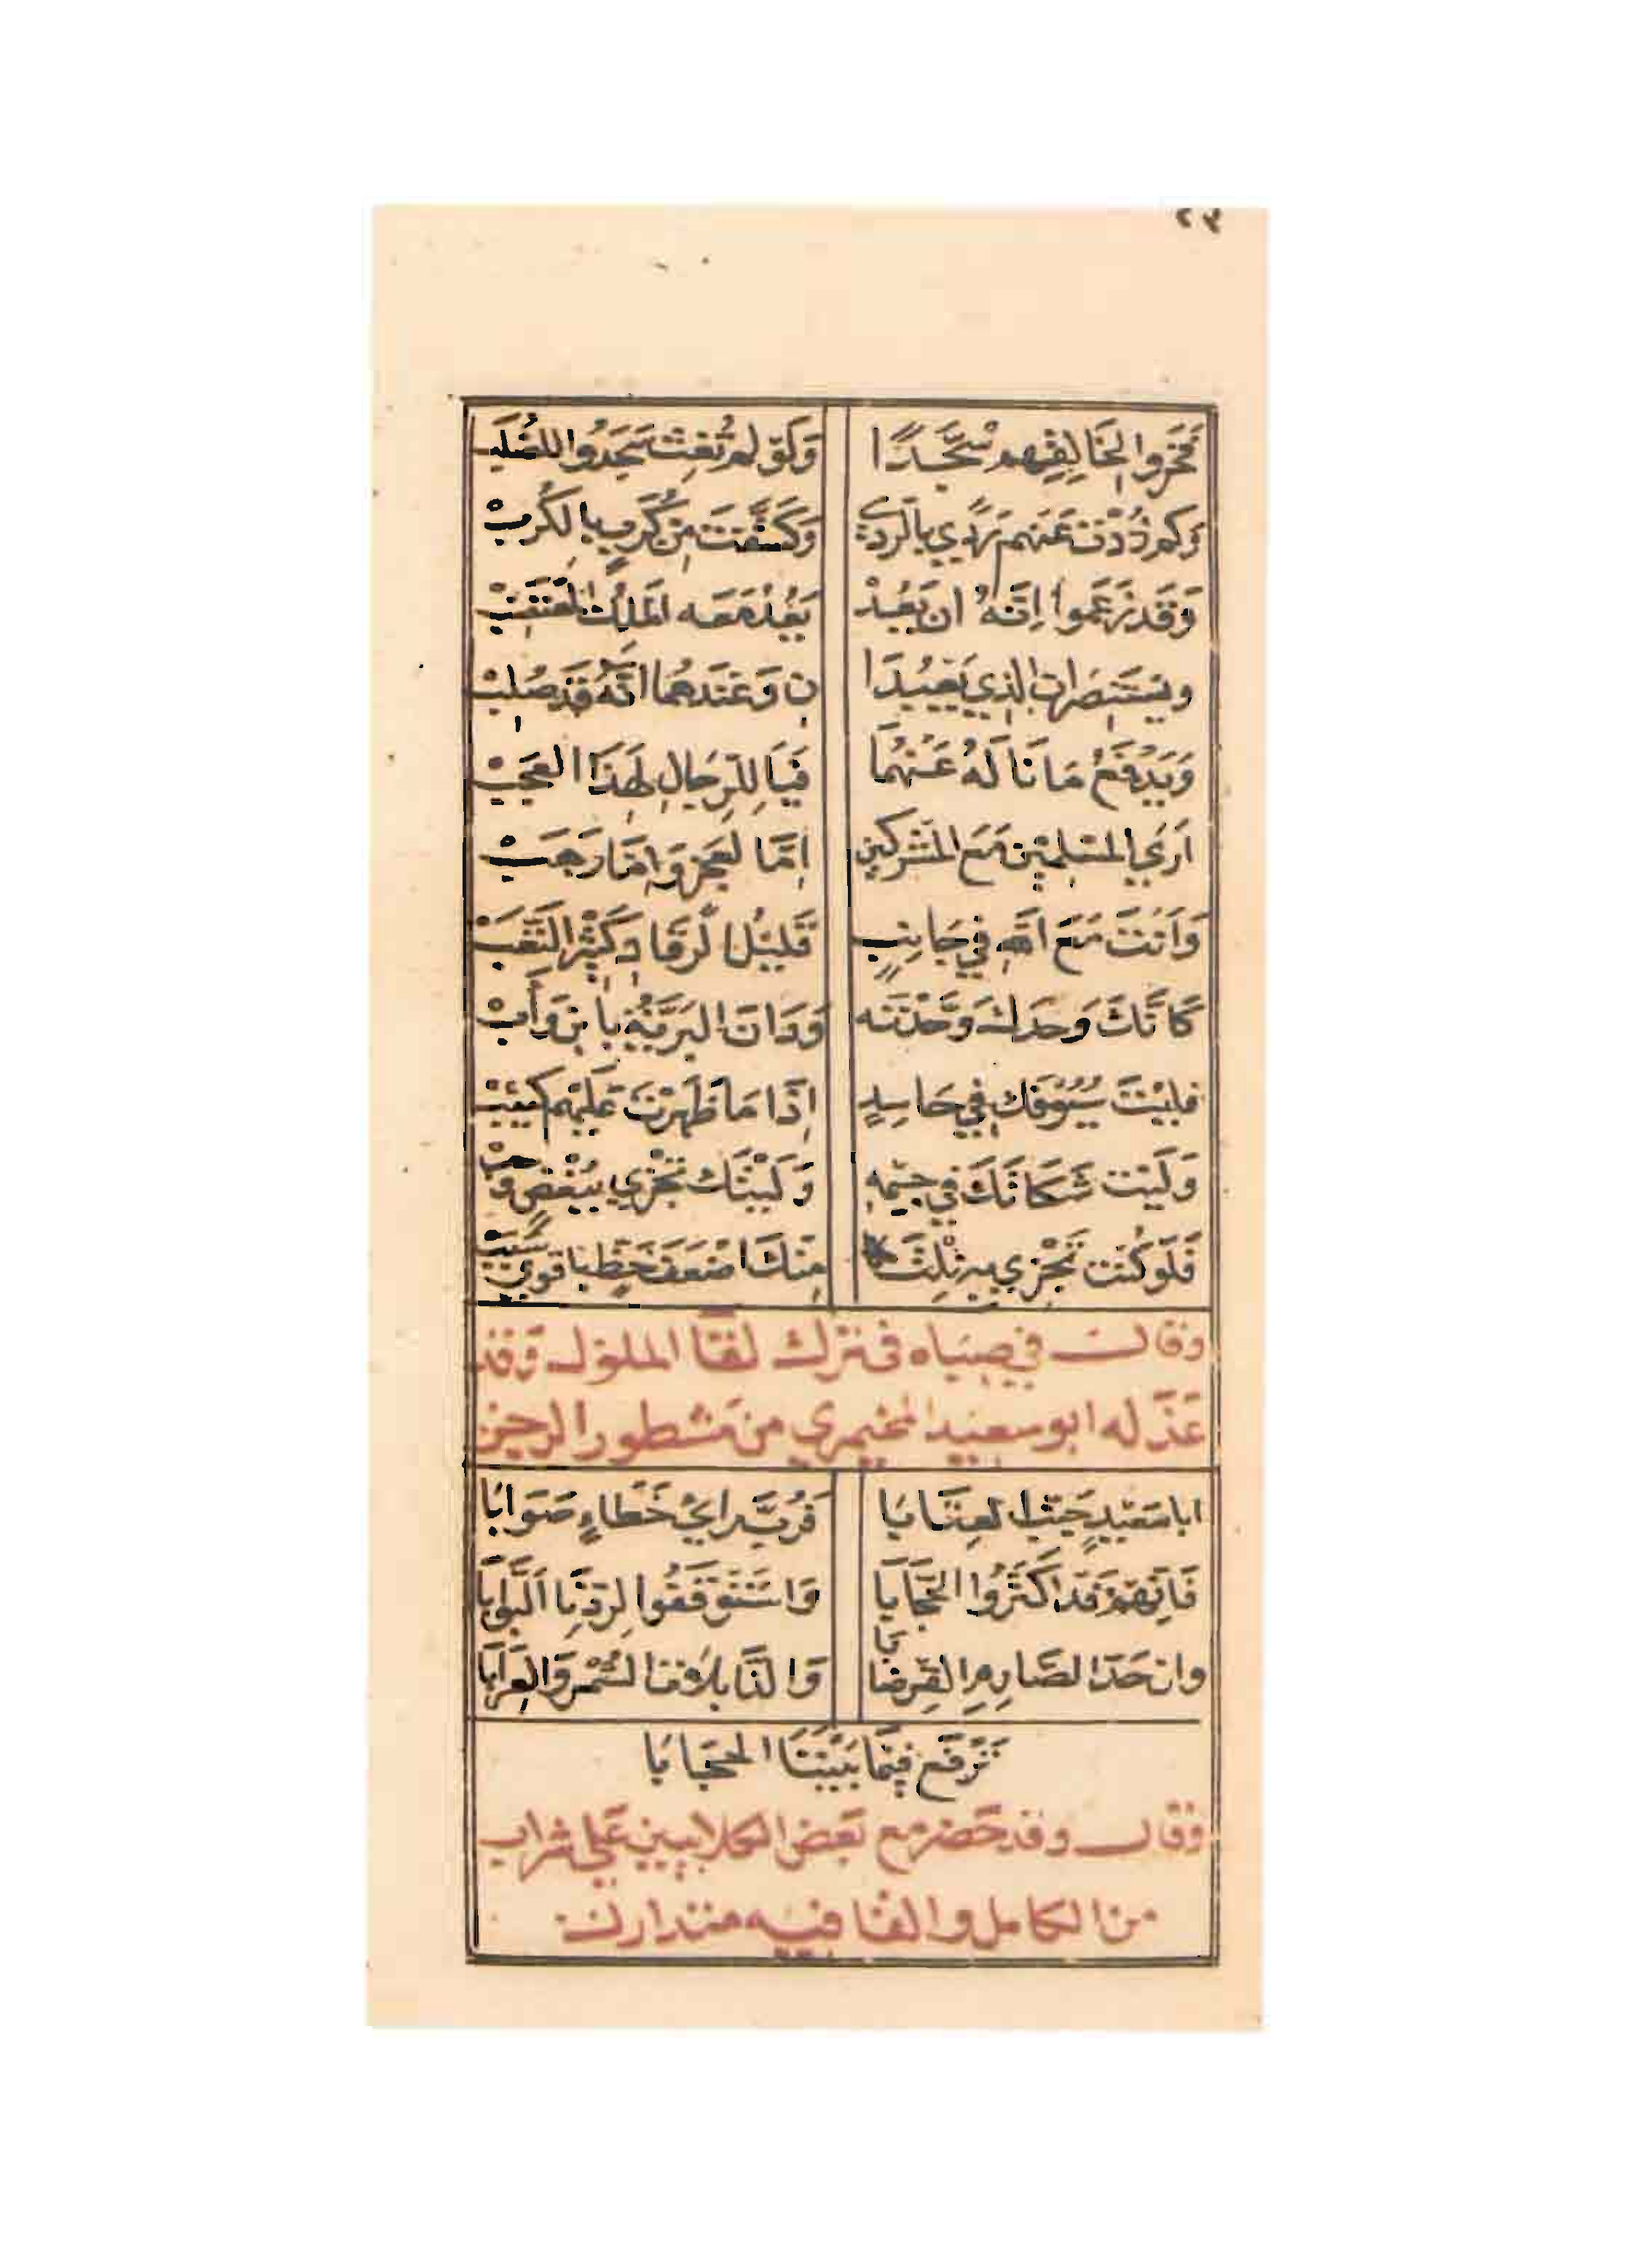 ٢٣
فَخَروا لِخَالِقِهِم سُجَّدًا وَلَو لم تُغِث سَجَدُوا للصُلُب
وَكم ذُدْتَ عَنهم رَدًي بالرَدى وَكَشَّفتَ مِن كُرَبٍ بالكُرَبْ
وَقَد زَعَموا اِنّهُ ان يَعُدْ يَعُدْ مَعَه المَلِكُ المعتَصِبْ
ويستَنصِرانِ الذي يَعبُدَا نِ وَعَندَهُما انّهُ قَد صُلِبْ
وَيَدْفَعُ مَا نَا لَهُ عَنْهُمَا فَيَا لِلرِّجَالِ لِهَذَا العَجَبْ
اَرَى المسْلِمِين مَعَ المشركين اِمَّا لعَجزٍ وَاِمَّا رَهَبْ
وَاَنتَ مَعَ اللهِ في جَانِبٍ قَليلُ الرّقَادِ كَثِيْر التَّعَبْ
كَاَنَّكَ وَحدَكَ وَحَّدْتَه وَدَانَ البَرِيَّةُ بابنٍ وَأَبْ
فليْتَ سُيُوفَكَ في حَاسِدٍ اِذَا مَا ظَهَرْتَ عَليْهم كَئِبْ
وَلَيْتَ شَكَاتَكَ في جِسْمِهِ وَلَيْتَكَ تَجْزي بِبُغْضٍ وَحُبْ
فَلَو كُنتَ تَجْزي بِه نِلْتُ مِنكَ اضعَفَ حَظٍ باقوى سَبَبْ
وقالــ في صِبَاه في ترك لقَا الملوك وَقد
عَذَله ابو سعيد المخيمري من مَشطور الرجز
ابا سَعيدٍ جَنِّبِ العِتَابَا فَرُبَّ رايٍ خَطَاءٍ صَوَابَا
فَاِنّهم قَد اَكثَرُوا الحُجَّابَا وَاستَوقَفُوا لِرَدِّنَا البَوّابَا
وان حَدَّ الصّارِمِ القِرضَابَا وَالذَّابِلَاتِ السُمْرِ وَالعِرابَا
تَرْفَع فيمَا بَيْنَنَا الحجَابَا
وقالــ وقد حَضر مع بَعض الكلابيين عَلى شراب
من الكامل والقافيه متدارك